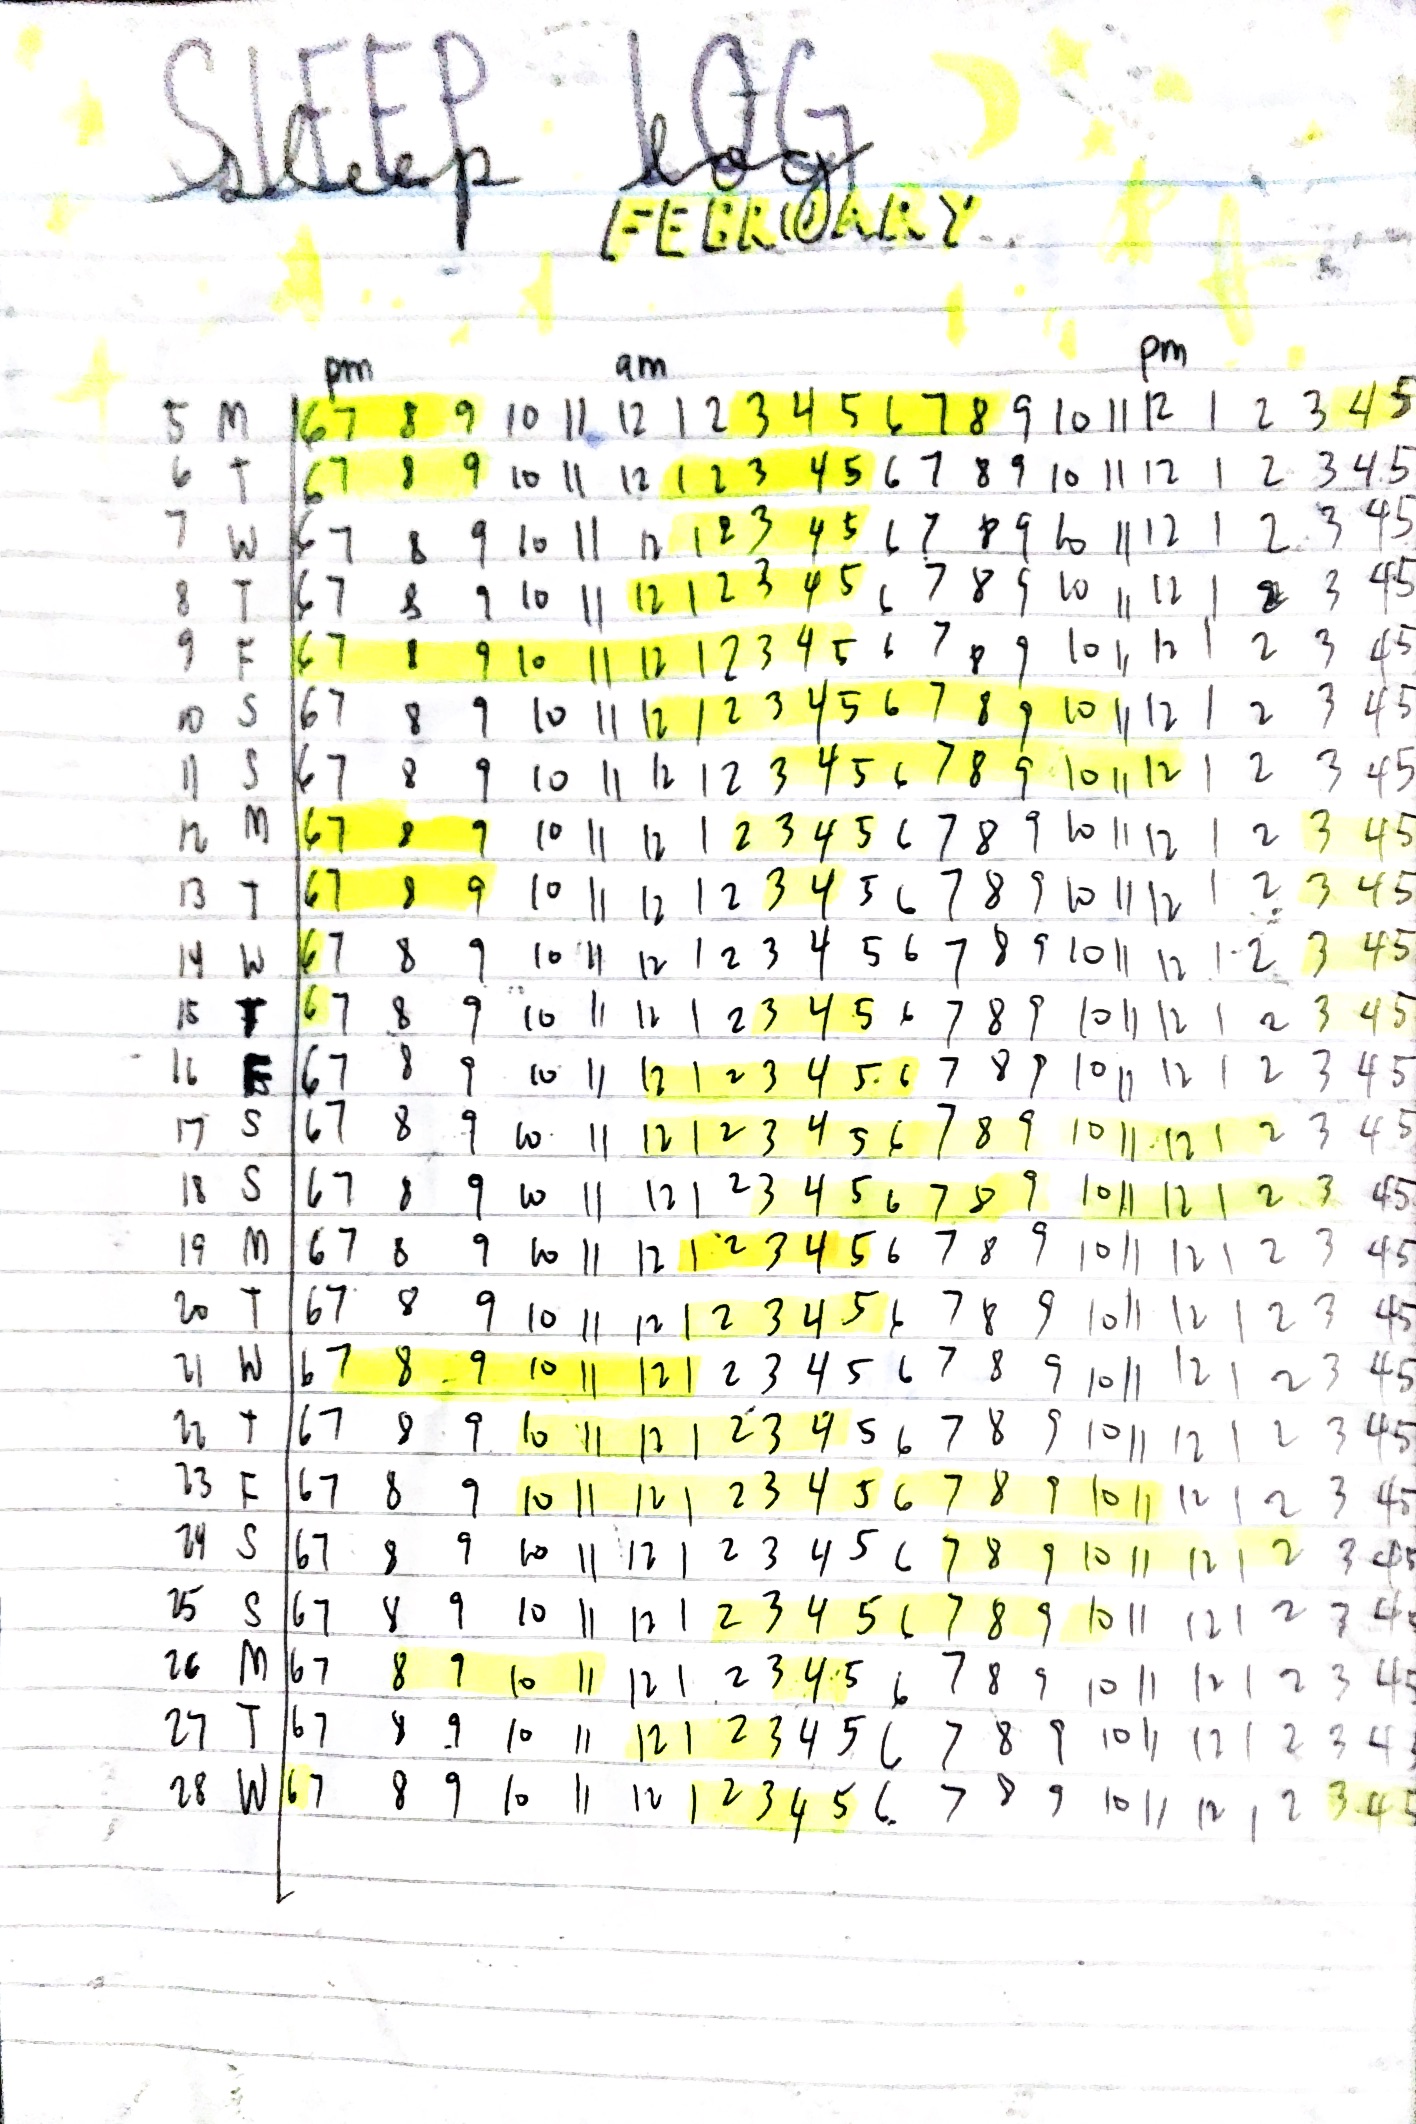 SLEEP LOG
sleep log
FEBRUARY
pm am pm
5 M 6 7 8 9 10 11 12 1 2 3 4 5 6 7 8 9 10 11 12 1 2 3 4 5
6 T 6 7 8 9 10 11 12 1 2 3 4 5 6 7 8 9 10 11 12 1 2 3 4 5
7 W 6 7 8 9 10 11 12 1 2 3 4 5 6 7 8 9 10 11 12 1 2 3 4 5
8 T 6 7 8 9 10 11 12 1 2 3 4 5 6 7 8 9 10 11 12 1 2 3 4 5
9 F 6 7 8 9 10 11 12 1 2 3 4 5 6 7 8 9 10 11 12 1 2 3 4 5
10 S 6 7 8 9 10 11 12 1 2 3 4 5 6 7 8 9 10 11 12 1 2 3 4 5
11 S 6 7 8 9 10 11 12 1 2 3 4 5 6 7 8 9 10 11 12 1 2 3 4 5
12 M 6 7 8 9 10 11 12 1 2 3 4 5 6 7 8 9 10 11 12 1 2 3 4 5
13 T 6 7 8 9 10 11 12 1 2 3 4 5 6 7 8 9 10 11 12 1 2 3 4 5
14 W 6 7 8 9 10 11 12 1 2 3 4 5 6 7 8 9 10 11 12 1 2 3 4 5
15 T 6 7 8 9 10 11 12 1 2 3 4 5 6 7 8 9 10 11 12 1 2 3 4 5
16 F 6 7 8 9 10 11 12 1 2 3 4 5 6 7 8 9 10 11 12 1 2 3 4 5
17 S 6 7 8 9 10 11 12 1 2 3 4 5 6 7 8 9 10 11 12 1 2 3 4 5
18 S 6 7 8 9 10 11 12 1 2 3 4 5 6 7 8 9 10 11 12 1 2 3 4 5
19 M 6 7 8 9 10 11 12 1 2 3 4 5 6 7 8 9 10 11 12 1 2 3 4 5
20 T 6 7 8 9 10 11 12 1 2 3 4 5 6 7 8 9 10 11 12 1 2 3 4 5
21 W 6 7 8 9 10 11 12 1 2 3 4 5 6 7 8 9 10 11 12 1 2 3 4 5
22 T 6 7 8 9 10 11 12 1 2 3 4 5 6 7 8 9 10 11 12 1 2 3 4 5
23 F 6 7 8 9 10 11 12 1 2 3 4 5 6 7 8 9 10 11 12 1 2 3 4 5
24 S 6 7 8 9 10 11 12 1 2 3 4 5 6 7 8 9 10 11 12 1 2 3 4 5
25 S 6 7 8 9 10 11 12 1 2 3 4 5 6 7 8 9 10 11 12 1 2 3 4 5
26 M 6 7 8 9 10 11 12 1 2 3 4 5 6 7 8 9 10 11 12 1 2 3 4 5
27 T 6 7 8 9 10 11 12 1 2 3 4 5 6 7 8 9 10 11 12 1 2 3 4
28 W 6 7 8 9 10 11 12 1 2 3 4 5 6 7 8 9 10 11 12 1 2 3 4 5